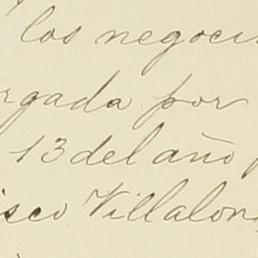 los negoci
rgada por
13 del año p
isco Villalon